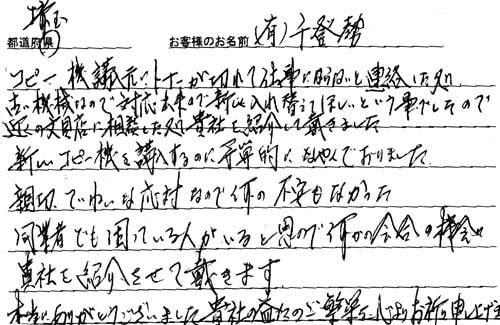 埼玉
都道府県 お客様のお名前 (有)千登勢
コピー機購元にトナーが切れて仕事にならないと連絡した処
古い機械なので対応出来ないので新しく入れ替えてほしいという事でしたので
近くの文具店に相談した処貴社を紹介して戴きました
新しいコピー機を購入するのに予算的になやんでおりました
親切でていねいな応対なので何の不安もなかった
同業者でも困っている人がいると思うので何かの会合の機会に
貴社を紹介させて戴きます
本当にありがとうございました 貴社の益々のご繁栄を心よりお祈り申し上げます